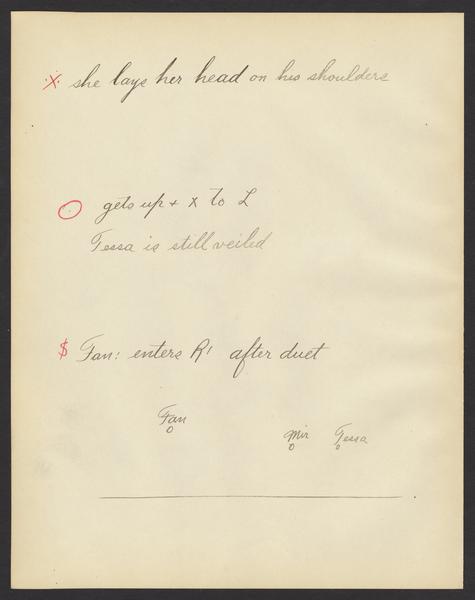 ·X· she lays her head on his shoulders
gets up + X to L
Tessa is still veiled
$ Fan: enters R1 after duet
Fan
Mir Tessa